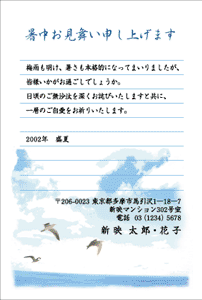 暑中お見舞い申し上げます
梅雨も明け、暑さも本格的になってまいりましたが、
皆様いかがお過ごしでしょうか。
日頃のご無沙汰を深くお詫びいたしますと共に、
一層のご自愛をお祈りいたします。
2002年　盛夏
〒206-0023 東京都多摩市馬引沢1-18-7
新映マンション302号室
電話 03 (1234) 5678
新 映 太 郎・花 子